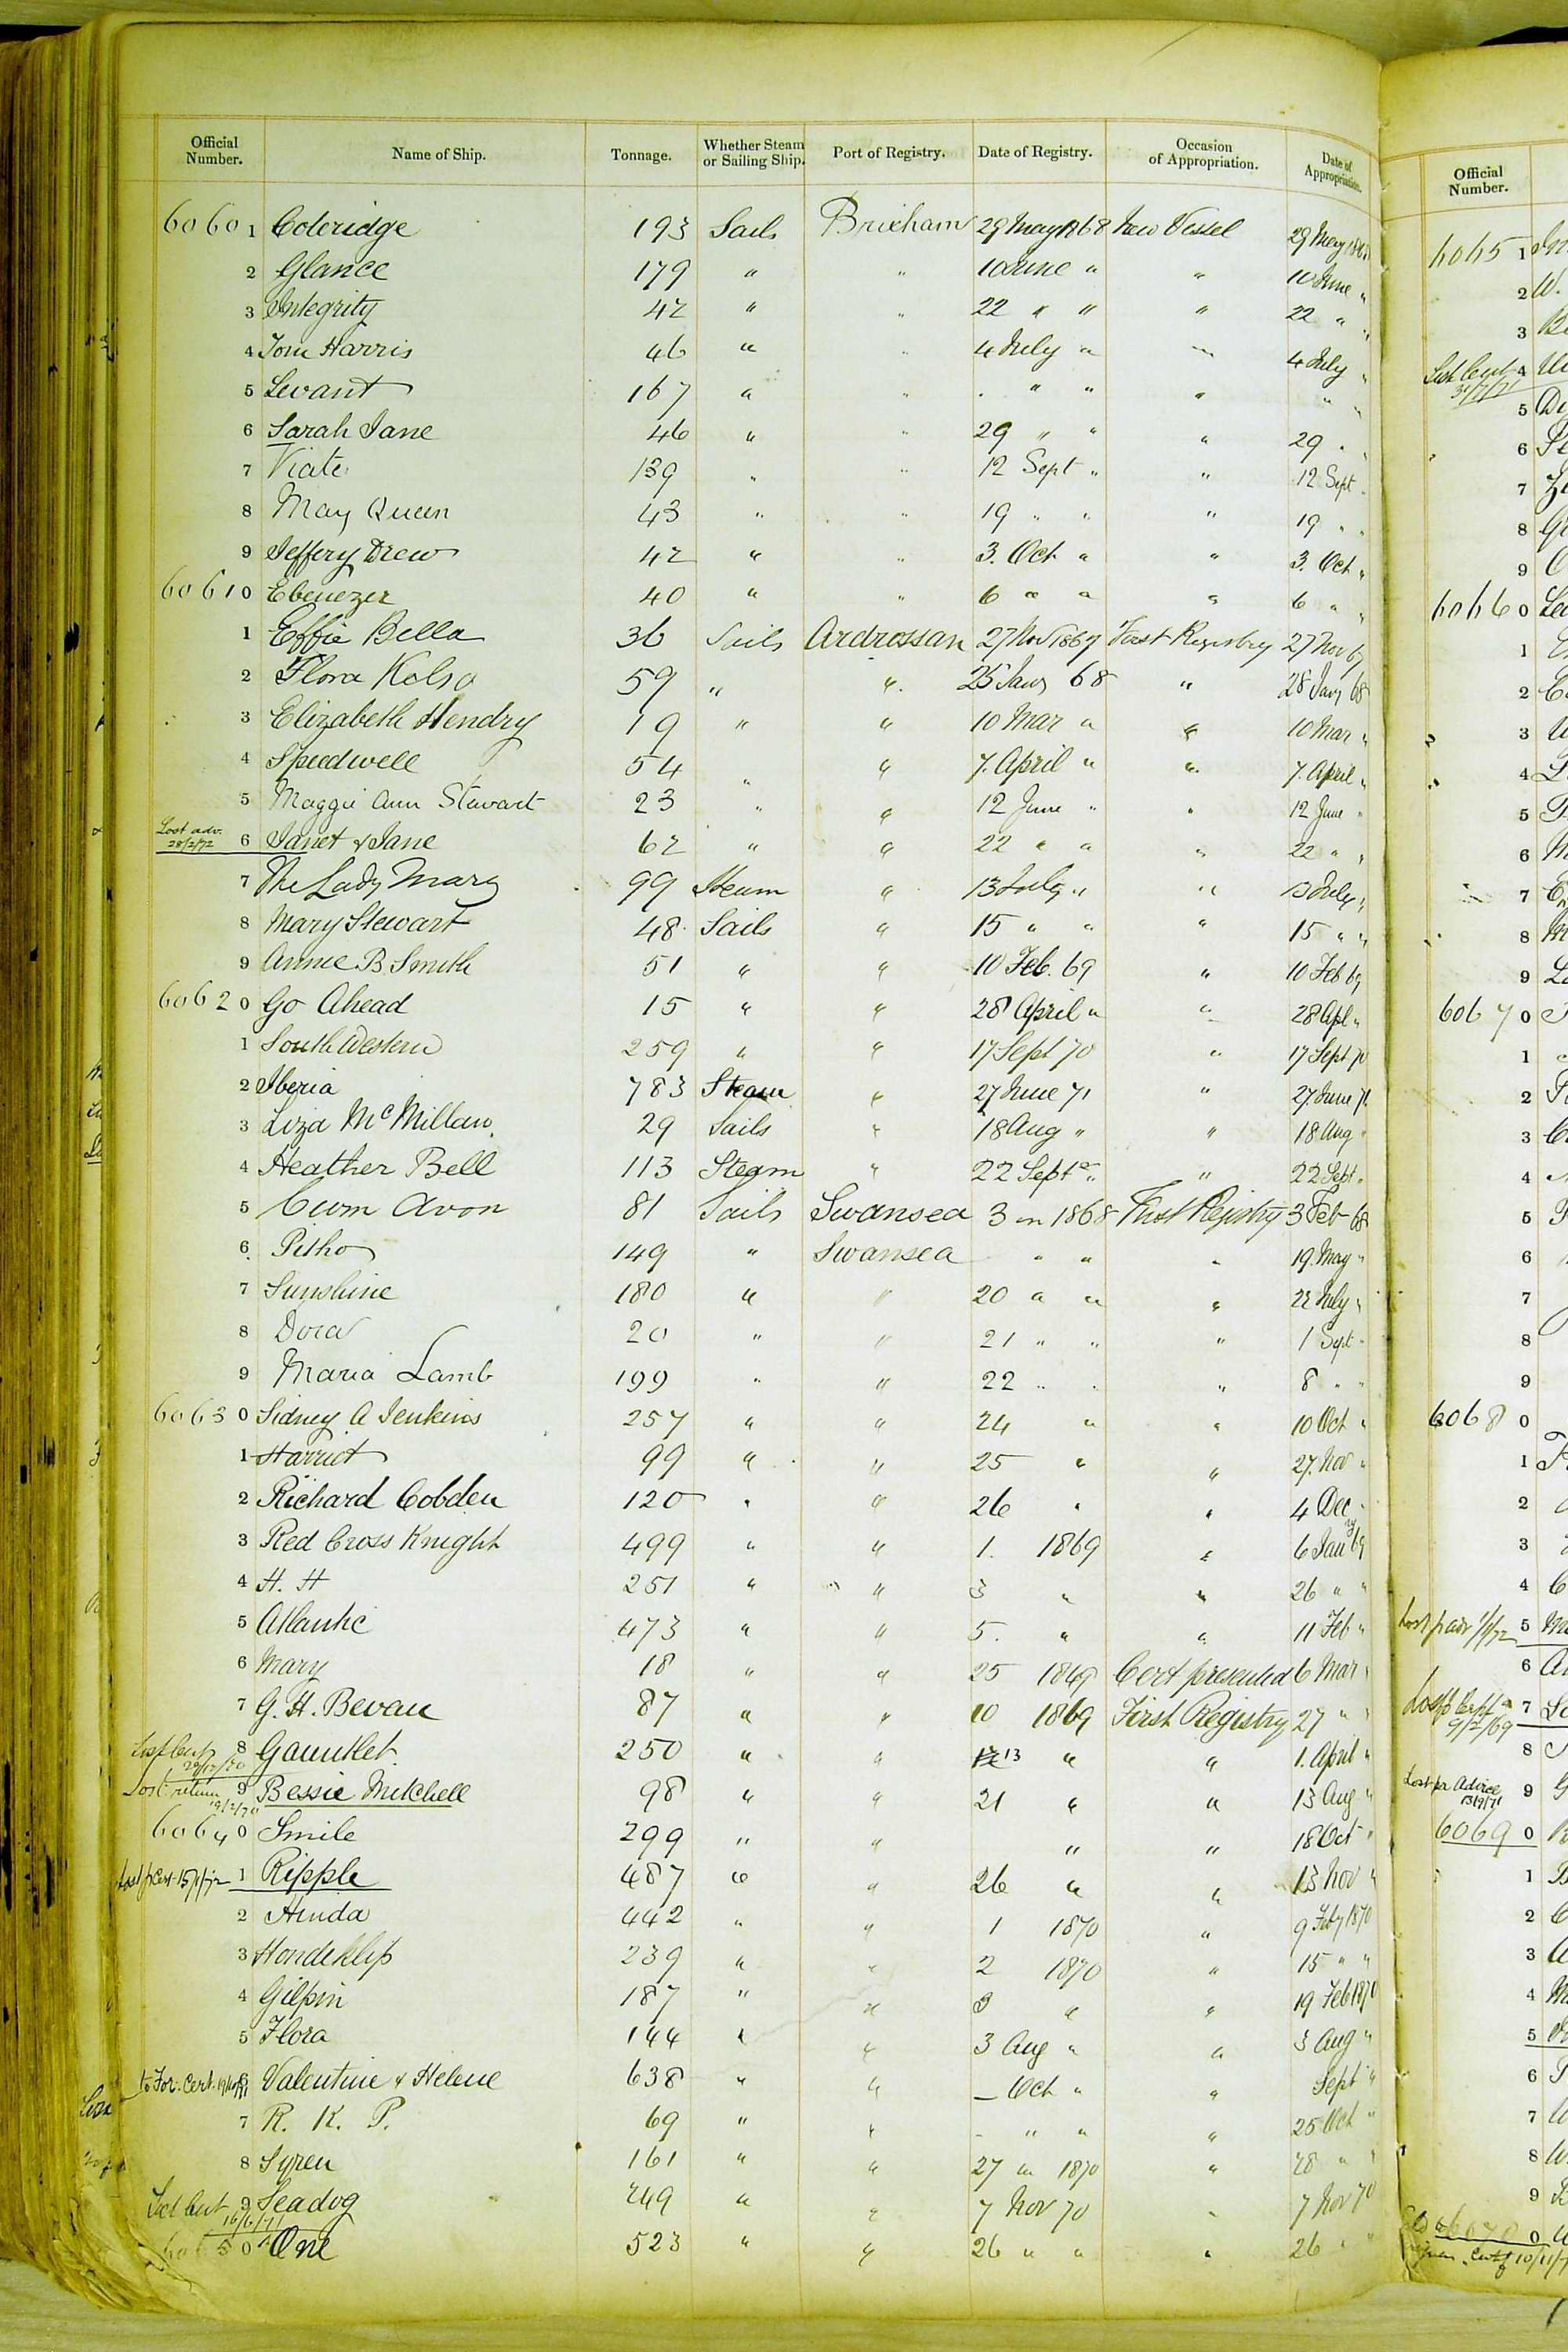 Official Number. Name of Ship. Tonnage. Whether Steam or Sailing Ship. Port of Registry. Date of Registry. Occasion of Appropriation. Date of Appropriation.
6060 1 Coleridge 193 Sails Brixham 29 May 1868 New Vessel 29 May 1868
2 Glance 179 " " 10 June " " 10 June "
3 Integrity 42 " " 22 " " " 22 " "
4 Tom Harris 46 " " 4 July " " 4 July "
5 Levant 167 " " " " " " " "
6 Sarah Jane 46 " " 29 " " " 29 " "
7 139 " " 12 Sept " " 12 Sept "
8 May Queen 43 " " 19 " " " 19 " "
9 Jeffery Drew 42 " " 3. Oct " " 3. Oct "
6061 0 Ebenezer 40 " " 6 " " " 6 " "
1 Effie Bella 36 Sails Ardrossan 27 Nov 1867 First Registry 27 Nov 67
2 Flora Kelso 59 " " Jany 68 " 28 Jany 68
3 Elizabeth Hendry 19 " " 10 Mar " " 10 Mar "
4 Speedwell 54 " " 7. April " " 7. April "
5 Maggie Ann Stewart 23 " " 12 June " " 12 June "
Lost adv. 28/2/72 6 Janet & Jane 62 " " 22 " " " 22 " "
7 The Lady Mary 99 Steam " 13 July " " 13 July "
8 Mary Stewart 48 Sails " 15 " " " 15 " "
9 Annie B Smith 51 " " 10 Feb. 69 " 10 Feb 69
6062 0 Go Ahead 15 " " 28 April " " 28 Apl "
1 South Western 259 " " 17 Sept 70 " 17 Sept 70
2 Iberia 783 Steam " 27 June 71 " 27. June 71
3 Liza McMillan 29 Sails " 18 Aug " " 18 Aug "
4 Heather Bell 113 Steam " 22 Septr " " 22 Sept "
5 Cwm Avon 81 Sails Swansea 3 in 1868 First Registry 3 Feb 68
6 Pitho 149 " Swansea " " " 19. May "
7 Sunshine 180 " " 20 " " " 22 July "
8 Dora 20 " " 21 " " " 1 Sept "
9 Maria Lamb 199 " " 22 " " " 8 " "
6063 0 Sidney A Jenkins 257 " " 24 " " 10 Oct "
1 Harriet 99 " " 25 " " 27. Nov "
2 Richard Cobden 120 " " 26 " " 4 Dec "
3 Red Cross Knight 499 " " 1. 1869 " 6 Jany 69
4 H. H 251 " " 3 " " 26 " "
5 Atlantic 473 " " 5. " " 11 Feb "
6 Mary 18 " " 25 1849 Cert presented 6 Mar "
7 G. H. Bevan 87 " " 10 1869 First Registry 27 " "
8 Gauntlet 250 " " 13 " " 1. April "
Lost return 9 Bessie Mitchell 98 " " 21 " " 13 Aug "
6064 0 Smile 299 " " " " 18 Oct "
1 Ripple 487 " " 26 " " 13 Nov "
2 Hinda 442 " " 1 1870 " 9 Feby 1870
3 Hondeklip 239 " " 2 1870 " 15 " "
4 Gilpin 187 " " 3 " " 19 Feb 1870
5 Flora 144 " " 3 Aug " " 3 Aug "
to For. Cert. Valentine & Helene 638 " " – Oct " " Sept "
7 R. K. P. 69 " " " " " 25 Oct "
8 Syren 161 " " 27 in 1870 " 28 " "
16/6/71 9 Seadog 249 " " 7 Nov 70 " 7 Nov 70
6065 0 One 523 " " 26 " " " 26 " "
Official Number.
6065 1
2 W.
3
4
31/7/71
5
6
7
8
9
6066 0
1
2
3
4
5
6
7
8
9
6067 0
1
2
3
4
5
6
7
8
9
6068 0
1
2
3
4
5
6
7
9/2/69
8
Lost pr Advice 13/9/71 9
6069 0
1
2
3
4
5
6
7
8
9
0